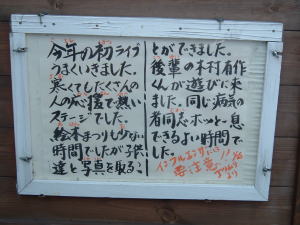 今年の初ライブ
うまくいきました。
寒くてしたくさんの
人の応援で熱い
ステージでした。
絵本まつりも少ない
時間でしたが子供
達と写真を取るこ
とができました。
後輩の木村有作
くんが遊びに来
ました。同じ病気の
者同志ホッと一息
できるよい時間で
した。
インフルエンザに
要注意